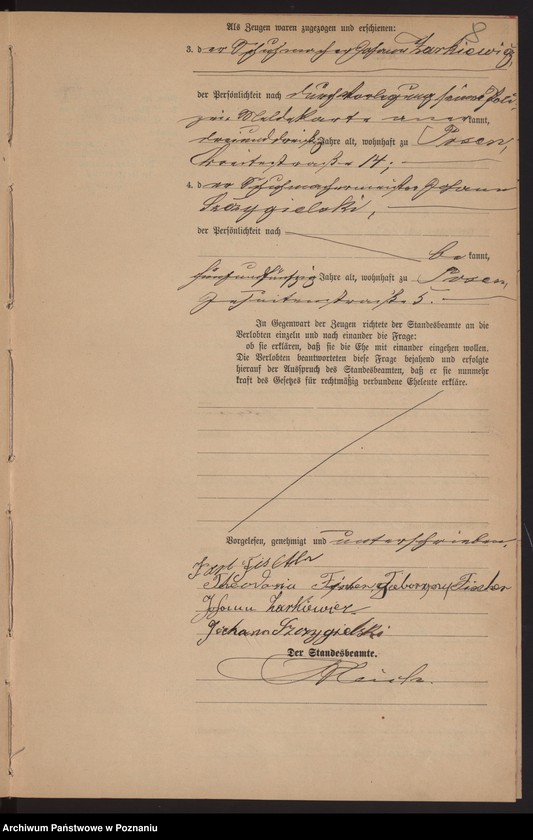 8
Als Zeugen waren zugezogen und erschienen:
3. der Schuhmacher Johann Zarkiewicz,
der Persönlichkeit nach durch Vorlegung seiner Poli-
zei Meldekarte anerkannt,
dreiunddreißig Jahre alt, wohnhaft zu Posen,
Breitestraße 14;
4. der Schuhmachermeister Johann
Szczygielski,
der Persönlichkeit nach
bekannt,
fünfundfünfzig Jahre alt, wohnhaft zu Posen,
Jesuitenstraße 5.
In Gegenwart der Zeugen richtete der Standesbeamte an die
Verlobten einzeln und nach einander die Frage:
ob sie erklären, daß sie die Ehe mit einander eingehen wollen.
Die Verlobten beantworteten diese Frage bejahend und erfolgte
hierauf der Ausspruch des Standesbeamten, daß er sie nunmehr
kraft des Gesetzes für rechtmäßig verbundene Eheleute erkläre.
Vorgelesen, genehmigt und unterschrieben.
Karl Fischer
Theodoria Fischer geborene Fischer
Johann Zarkiewicz
Johann Szczygielski
Der Standesbeamte.
Archiwum Państwowe w Poznaniu